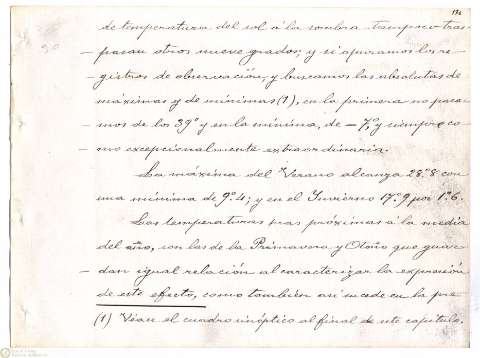 134
de temperatura del sol á la sombra tampoco tras-
pasan otros nueve grados; y si apuramos los re-
gistros de observación, y buscamos las absolutas de
máximas y de mínimas (1), en la primera no pasa-
mos de los 39º y en la mínima, de -7º, y siempre co-
mo excepcionalmente extraordinaria.
La máxima del Verano alcanza 28º.8 con
una mínima de 9º.4; y en el Invierno 17º.9 por 1º.6.
Las temperaturas mas próximas á la media
del año, son las de la Primavera y Otoño que guar-
dan igual relación al caracterizar la expresión
de este efecto, como también asi sucede en la pre-
(1) Véase el cuadro sinóptico al final de este capítulo.